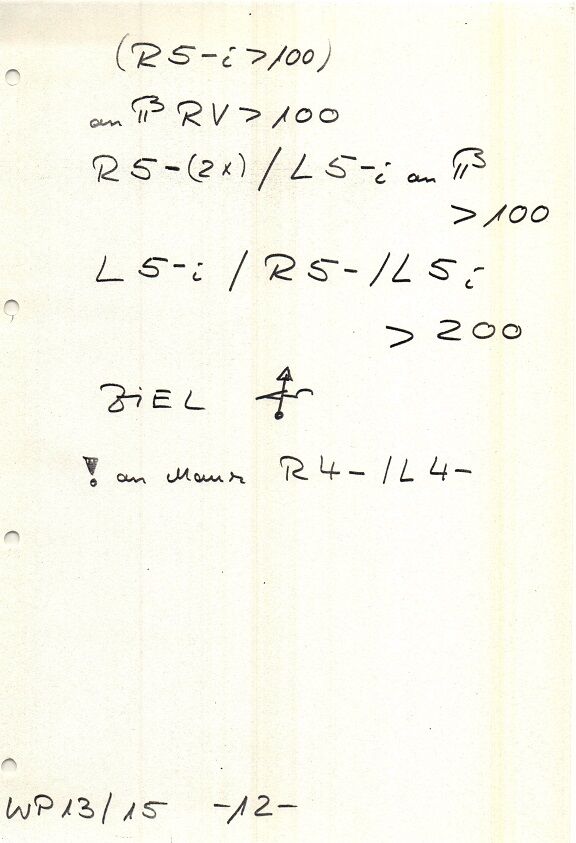 (R5-i>100)
an RV>100
R5-(2x)/L5-i an
>100
L5-i/R5-/L5i
> 200
ZiEL
! an Mauer R4-/L4-
WP13/15 -12-